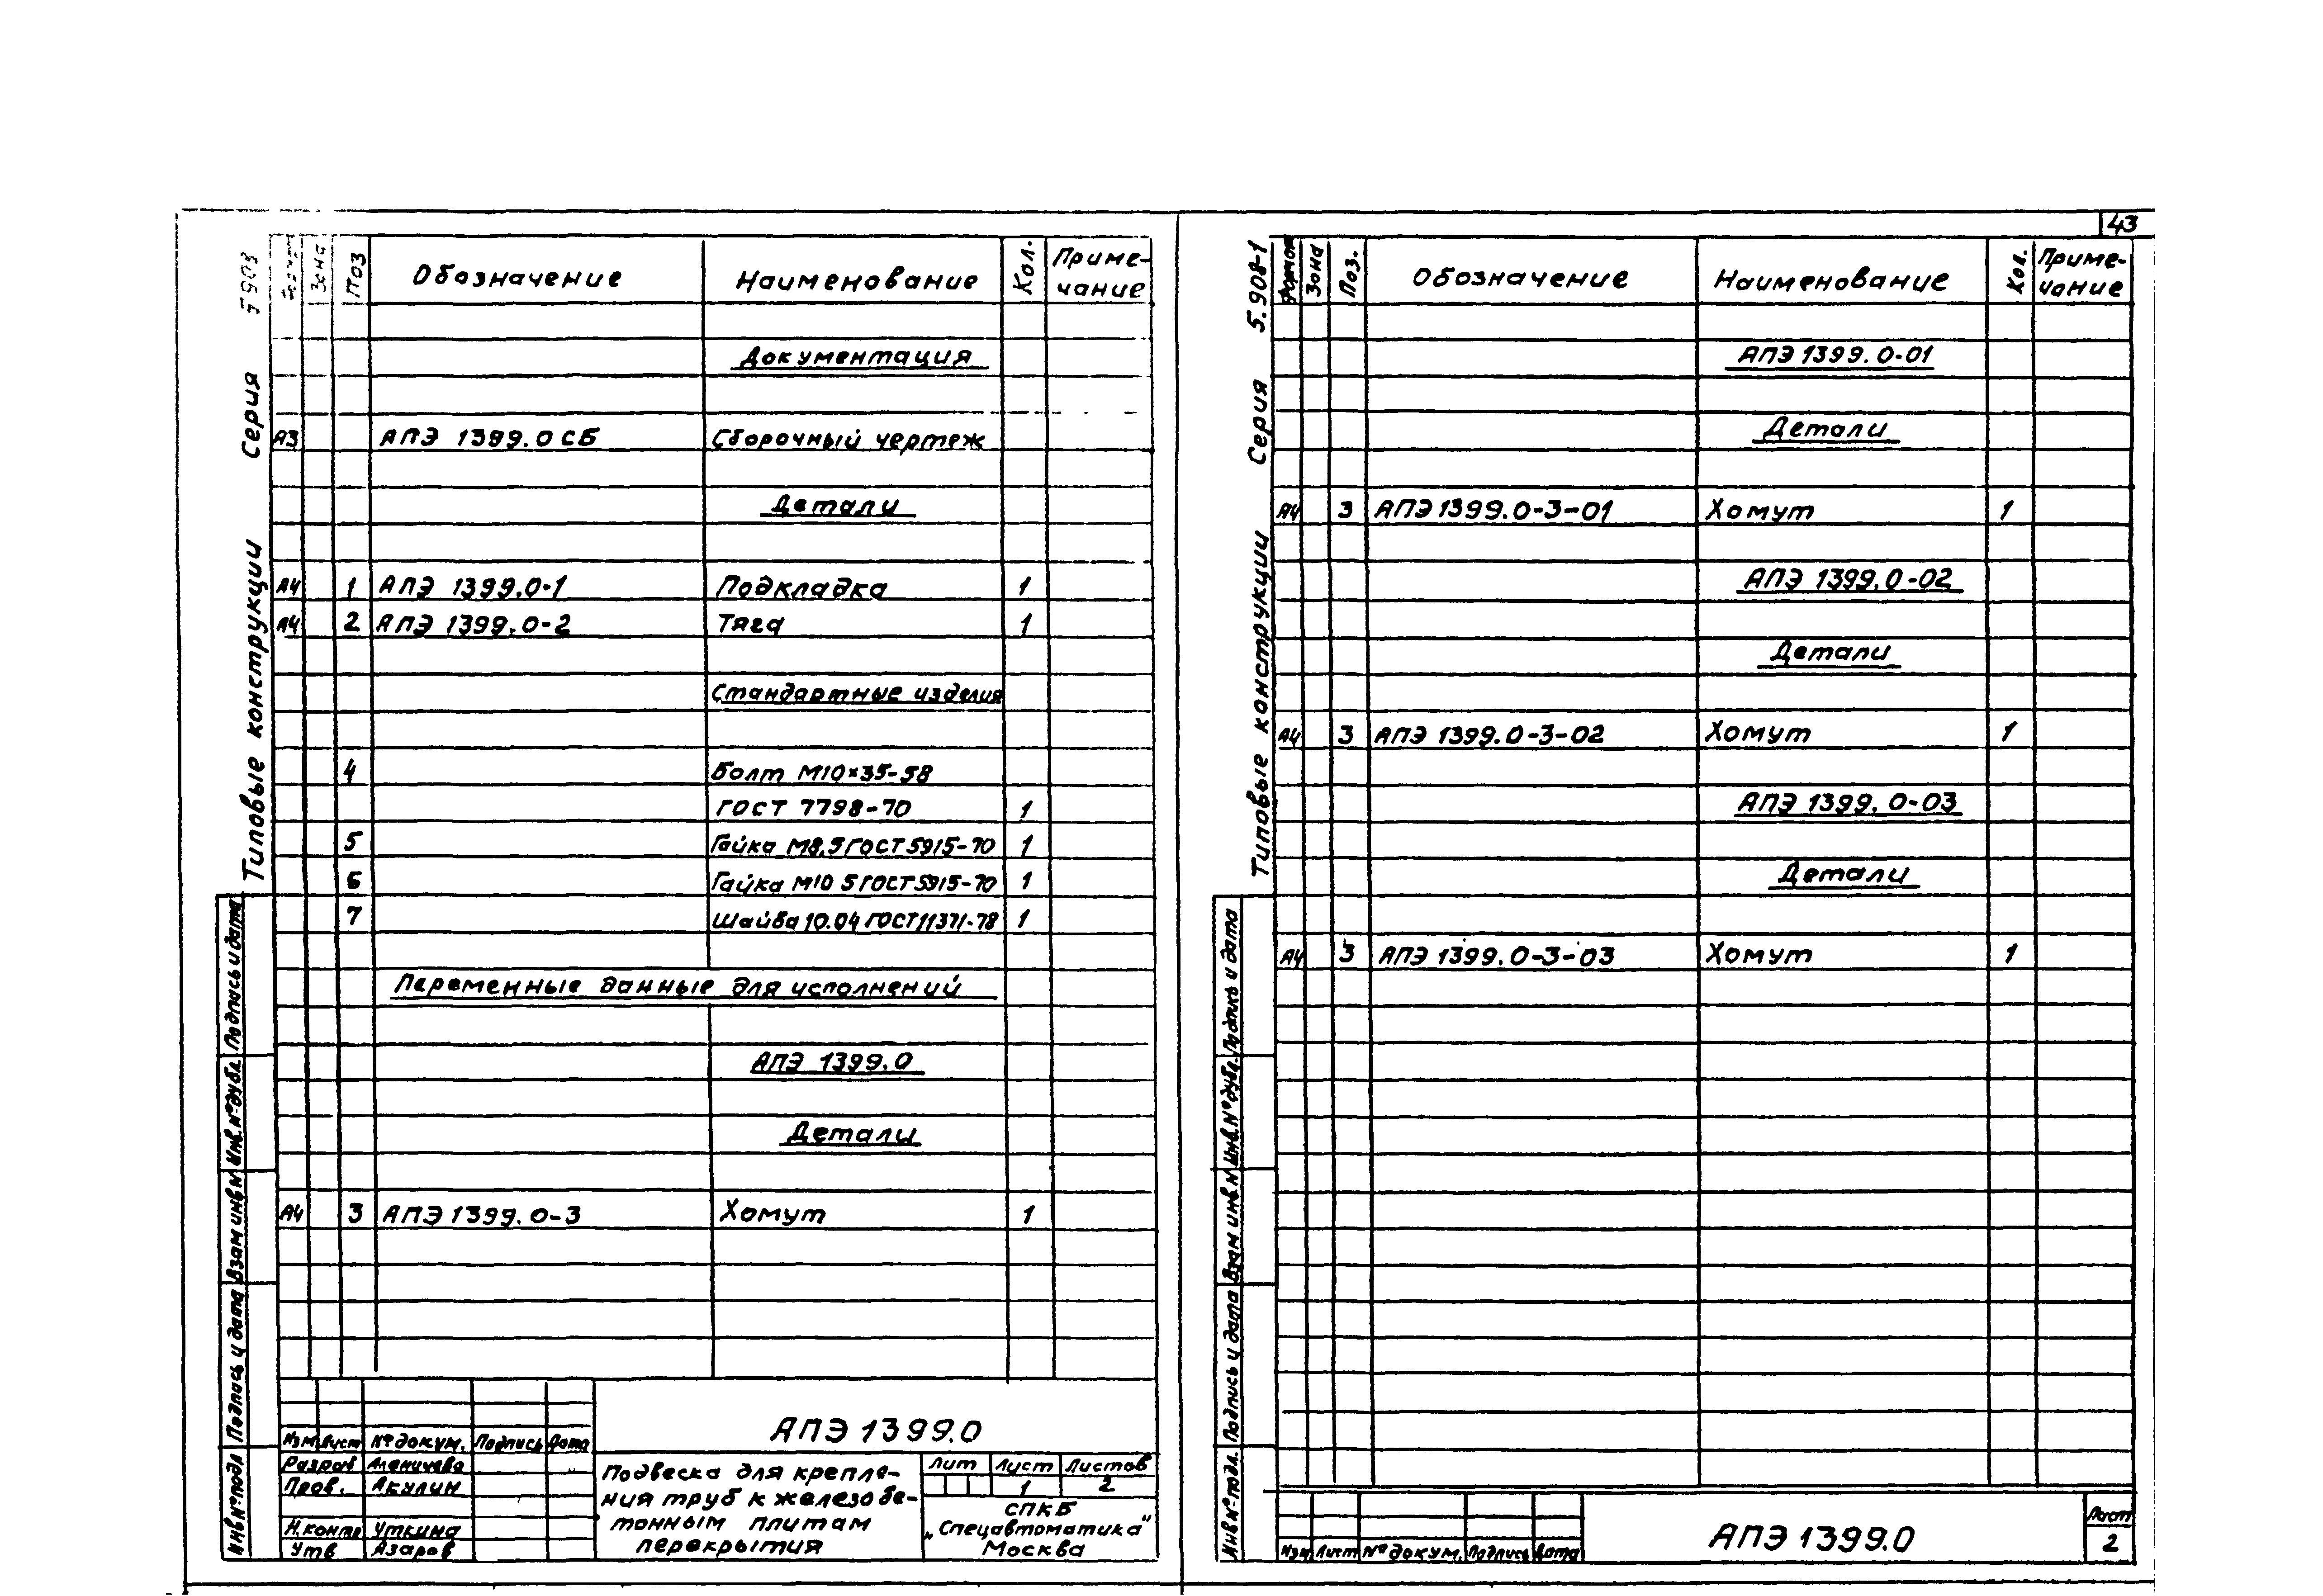 43
Типовые конструкции Серия
Зона Поз Обозначение Наименование Кол. Приме-
чание
Документация
А3 АПЭ 1399.0 СБ Сборочный чертеж
Детали
А4 1 АПЭ 1399.0-1 Подкладка 1
А4 2 АПЭ 1399.0-2 Тяга 1
Стандартные изделия
4 Болт М10×35-58
ГОСТ 7798-70 1
5 Гайка М8.5 ГОСТ 5915-70 1
6 Гайка М10 5 ГОСТ 5915-70 1
7 Шайба 10.04 ГОСТ 11371-78 1
Переменные данные для исполнений
АПЭ 1399.0
Детали
А4 3 АПЭ 1399.0-3 Хомут 1
Инв № подл Подпись и дата Взам инв № Инв. № дубл. Подпись и дата
Изм Лист № докум. Подпись Дата
Разраб Аленичева
Пров. Акулин
Н.контр Уткина
Утв Азаров
АПЭ 1399.0
Подвеска для крепле-
ния труб к железобе-
тонным плитам
перекрытия
Лит Лист Листов
1 2
СПКБ
„Спецавтоматика"
Москва
Типовые конструкции Серия 5.908-1
Формат Зона Поз. Обозначение Наименование Кол. Приме-
чание
АПЭ 1399.0-01
Детали
А4 3 АПЭ 1399.0-3-01 Хомут 1
АПЭ 1399.0-02
Детали
А4 3 АПЭ 1399.0-3-02 Хомут 1
АПЭ 1399.0-03
Детали
А4 3 АПЭ 1399.0-3-03 Хомут 1
Инв № подл. Подпись и дата Взам инв № Инв. № дубл. Подпись и дата
Изм Лист № докум. Подпись Дата
АПЭ 1399.0
Лист
2